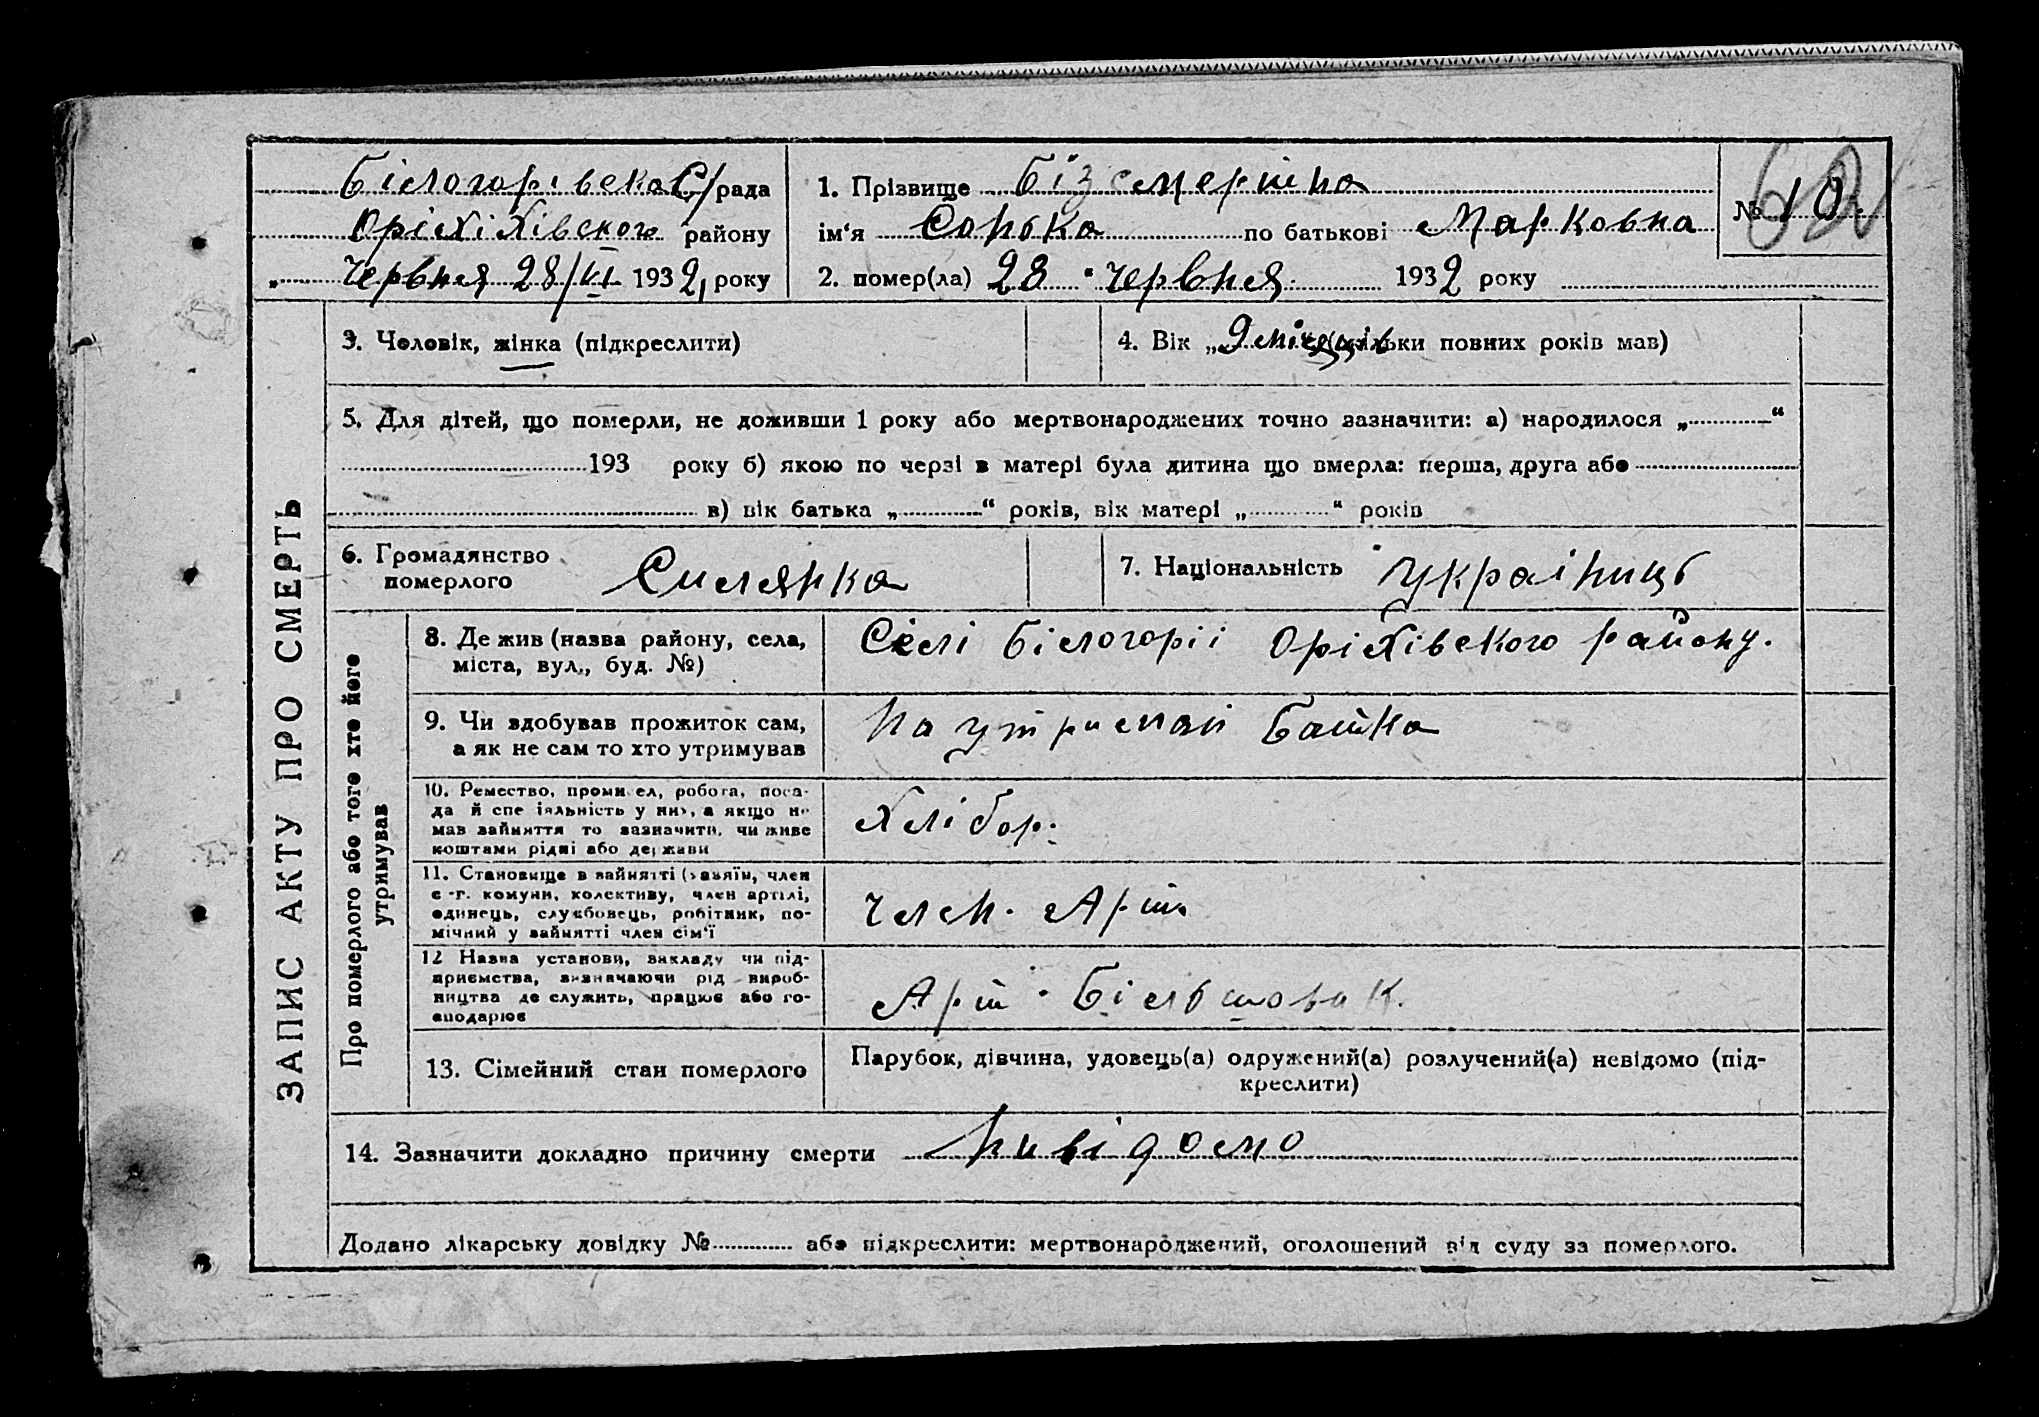 Білогорівська С/рада
Оріхіхівского району
„ Червня 28/VI 1932, року
1. Прізвище Бізсмертна
ім‘я Сонька по батькові Марковна
2. помер(ла) 28 " Червня 1932 року
№ 10.
ЗАПИС АКТУ ПРО СМЕРТЬ
3. Человік, жінка (підкреслити)
4. Вік „ 9 місяців (скільки повних років мав)
5. Для дітей, що померли, не доживши 1 року або мертвонароджених точно зазначити: а) народилося „ “
193 року б) якою по черзі в матері була дитина що вмерла: перша, друга або
в) вік батька „ “ років, вік матері „ “ років
6. Громадянство
померлого Силянка
7. Національність Украіниць
Про померлого або того хто його
утримував
8. Де жив (назва району, села,
міста, вул., буд. №)
Сілі Білогоріі Оріхівского району.
9. Чи вдобував прожиток сам,
а як не сам то хто утримував
На утримані Батка
10. Ремество, промисел, робота, поса-
да й спеціяльність у них, а якщо не
мав зайняття то зазначити, чи живе
коштами рідні або держави
Хлібор.
11. Становище в зайнятті (хазяїн, член
с.-г. комуни, колективу, член артілі,
одинець, службовець, робітник, по-
мічний у зайнятті член сім‘ї
член. Арт.
12 Назва установи, закладу чи під-
приємства, визначаючи рід вироб-
ництва де служить, працює або го-
сподарює
Арт. Більшовик.
13. Сімейний стан померлого
Парубок, дівчина, удовець(а) одружений(а) розлучений(а) невідомо (під-
креслити)
14. Зазначити докладно причину смерти нивідомо
Додано лікарську довідку № або підкреслити: мертвонароджений, оголошений від суду за померлого.